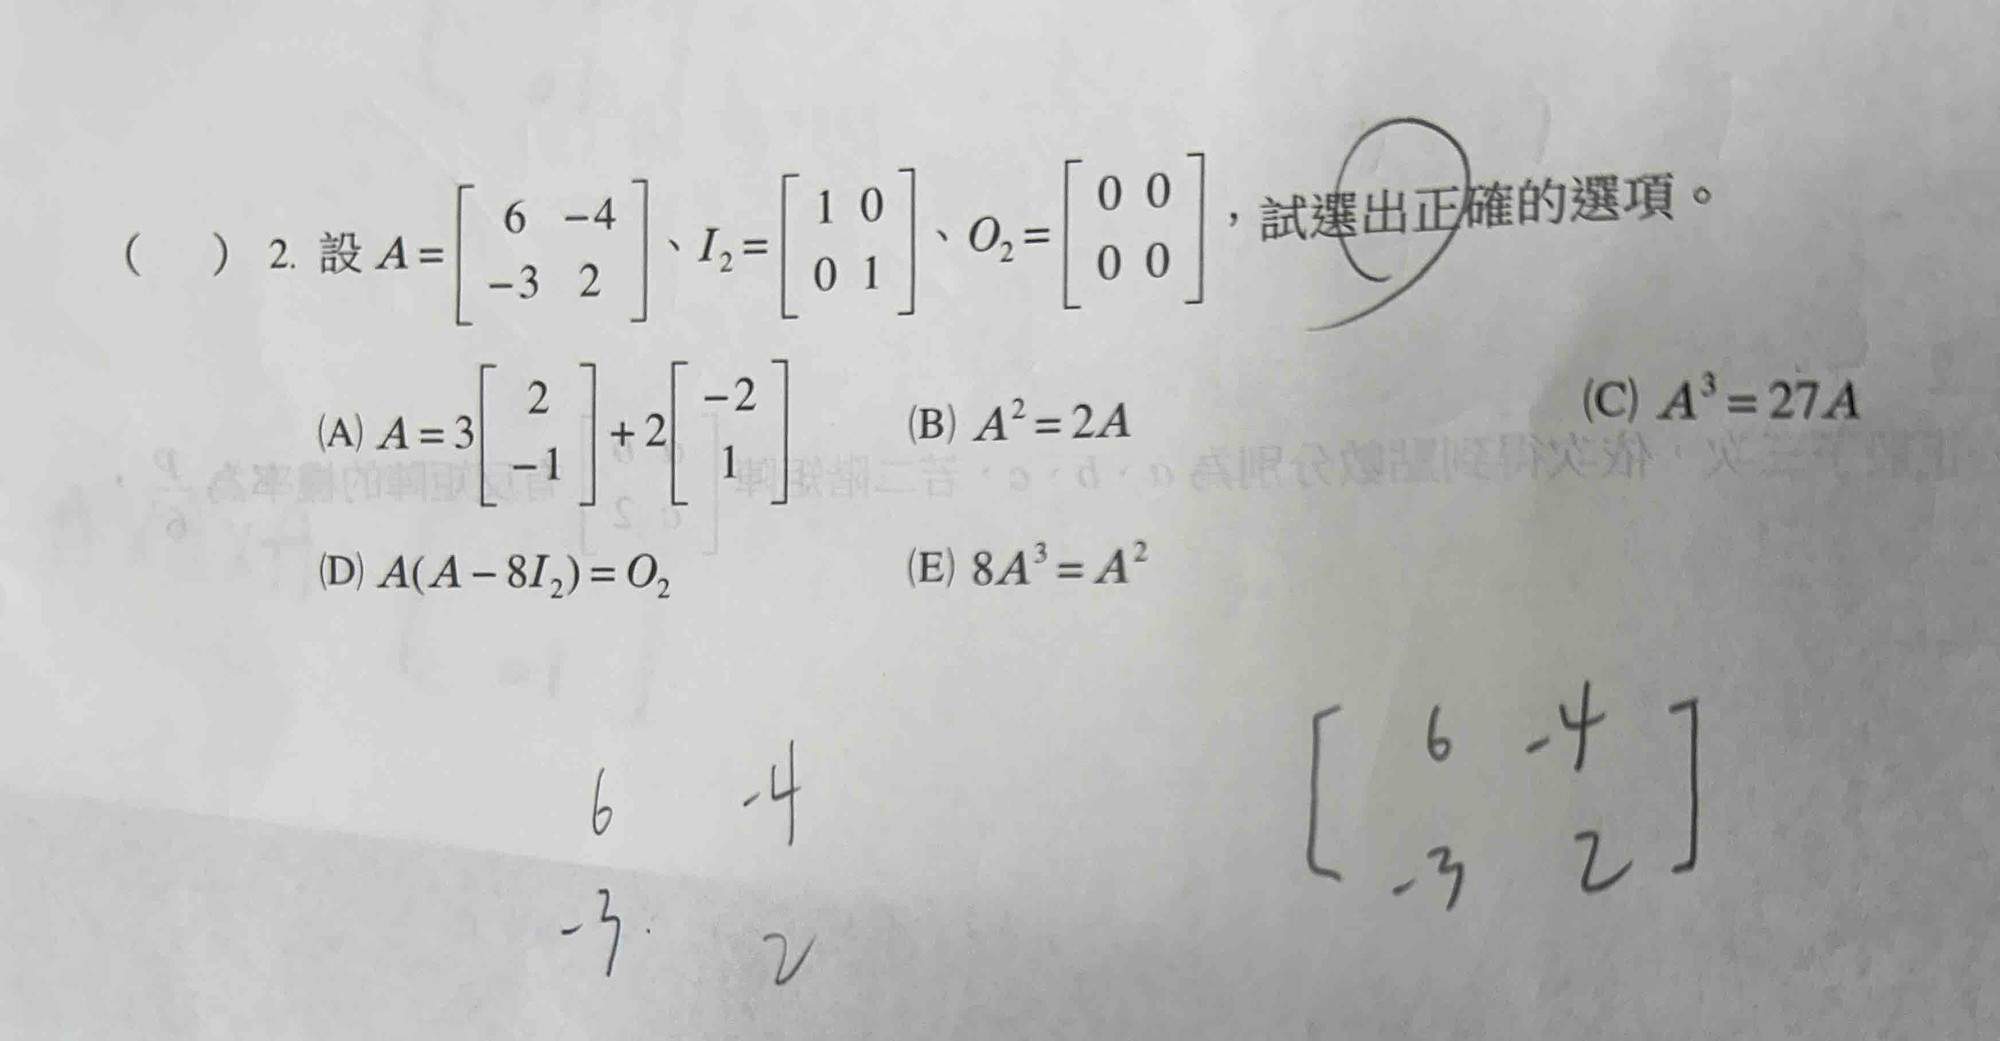 ( ) 2. 設 A = [ 6 −4 ; −3 2 ]、I₂ = [ 1 0 ; 0 1 ]、O₂ = [ 0 0 ; 0 0 ]，試選出正確的選項。
(A) A = 3[ 2 ; −1 ] + 2[ −2 ; 1 ] (B) A² = 2A (C) A³ = 27A
(D) A(A − 8I₂) = O₂ (E) 8A³ = A²
6 -4
-3 2
[ 6 -4
-3 2 ]